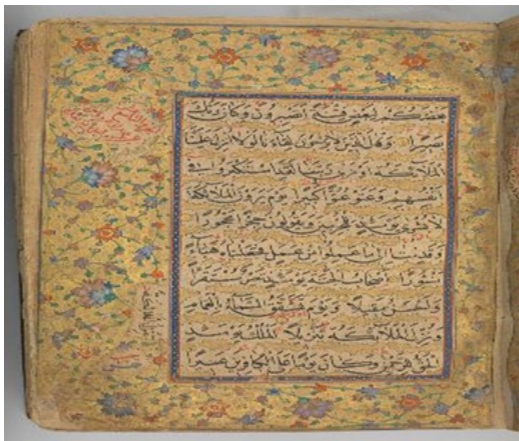 بعضكم لبعض فتنة أتصبرون وكان ربك
بصيرا وقال الذين لا يرجون لقاءنا لولا أنزل علينا
الملائكة أو نرى ربنا لقد استكبروا في
أنفسهم وعتو عتوا كبيرا يوم يرون الملائكة
لا بشرى يومئذ للمجرمين ويقولون حجرا محجورا
وقدمنا إلى ما عملوا من عمل فجعلناه هباء
منثورا أصحاب الجنة يومئذ خير مستقرا
وأحسن مقيلا ويوم تشقق السماء بالغمام
ونزل الملائكة تنزيلا الملك يومئذ
الحق للرحمن وكان يوما على الكافرين عسيرا